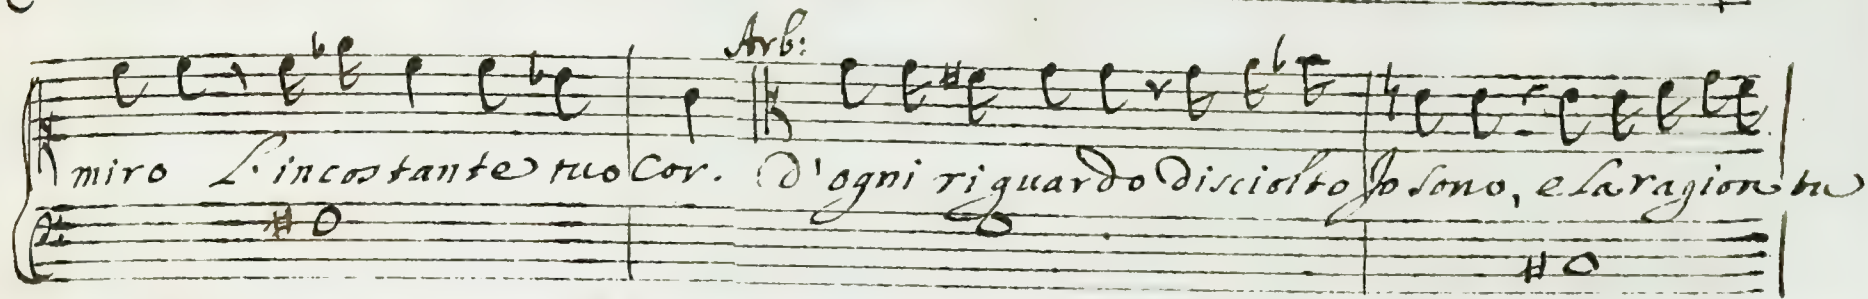 Arb:
miro L'incostante tuo Cor. d'ogni riguardo disciolto Io sono, e la ragion tu